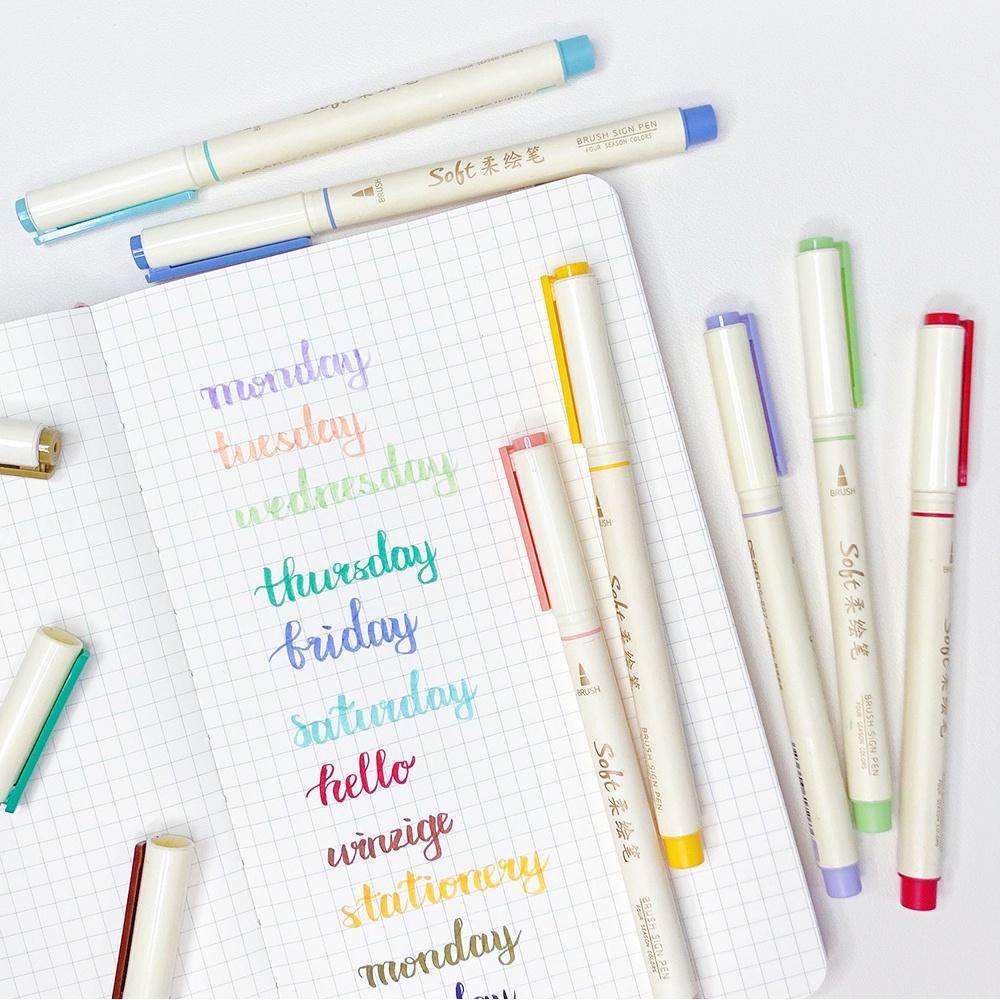 Soft 柔绘笔
BRUSH
BRUSH SIGN PEN
FOUR SEASON COLORS
monday
tuesday
wednesday
thursday
friday
saturday
hello
winzige
stationery
monday
BRUSH
Soft 柔绘笔
BRUSH SIGN PEN
FOUR SEASON COLORS
Soft 柔绘笔
BRUSH SIGN PEN
BRUSH
Soft 柔绘笔
BRUSH SIGN PEN
FOUR SEASON COLORS